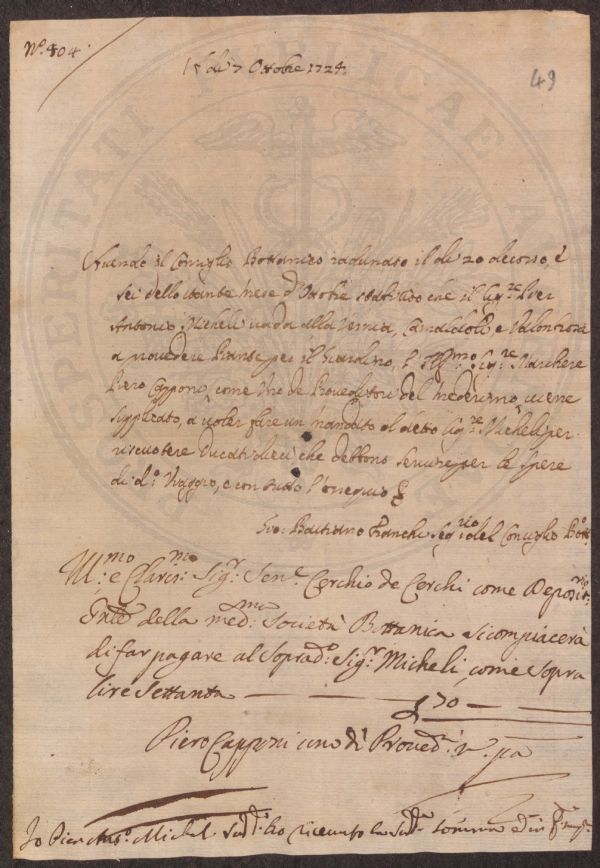 N.º 404.
49
di 7 Ottobre 1724.
Avendo il Consiglio Bottanico radunato il dì 20 decorso, e
sei dello stante mese d'Ottobre stabilito che il Sig.re Pier
Antonio Micheli vada alla Vernia, Camaldoli e Valombrosa
a provedere Piante per il Giardino, l' Ill.mo Sig.re Marchese
Piero Capponi, come Uno de Proveditori del medesimo viene
supplicato, a voler fare un mandato al detto Sig.re Micheli per
riscuotere Ducati dieci che debbono servire per le spese
di d.o Viaggio, e con tutto l'ossequio
Gio: Bastiano Franchi Seg.rio del Consiglio Bott.o
Ill.mo e Clariss.mo Sig.r Sen.e Cerchio de Cerchi come Deposit.rio
Gnle della med.ma Società Bottanica si compiacerà
di far pagare al Soprad.o Sig.r Micheli come sopra
lire settanta — — — £ 70 —
Piero Capponi uno di Proved.i m. pa
Io Pier Ant.o Micheli sudd.o ho ricevuto la sudd.a somma